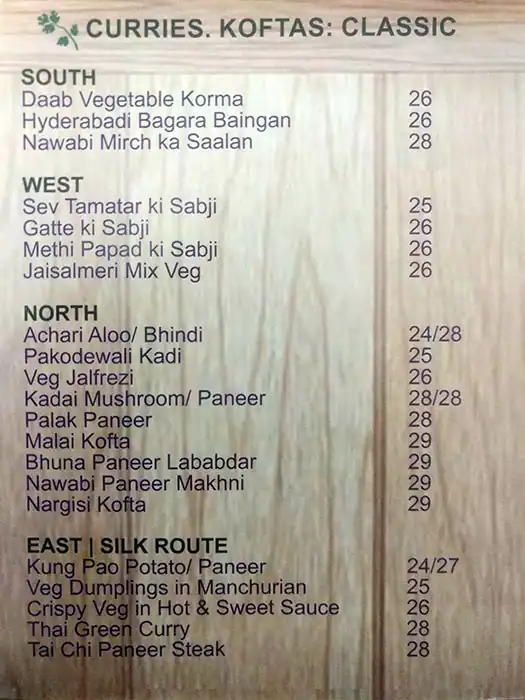 CURRIES. KOFTAS: CLASSIC
SOUTH
Daab Vegetable Korma 26
Hyderabadi Bagara Baingan 26
Nawabi Mirch ka Saalan 28
WEST
Sev Tamatar ki Sabji 25
Gatte ki Sabji 26
Methi Papad ki Sabji 26
Jaisalmeri Mix Veg 26
NORTH
Achari Aloo/ Bhindi 24/28
Pakodewali Kadi 25
Veg Jalfrezi 26
Kadai Mushroom/ Paneer 28/28
Palak Paneer 28
Malai Kofta 29
Bhuna Paneer Lababdar 29
Nawabi Paneer Makhni 29
Nargisi Kofta 29
EAST | SILK ROUTE
Kung Pao Potato/ Paneer 24/27
Veg Dumplings in Manchurian 25
Crispy Veg in Hot & Sweet Sauce 26
Thai Green Curry 28
Tai Chi Paneer Steak 28